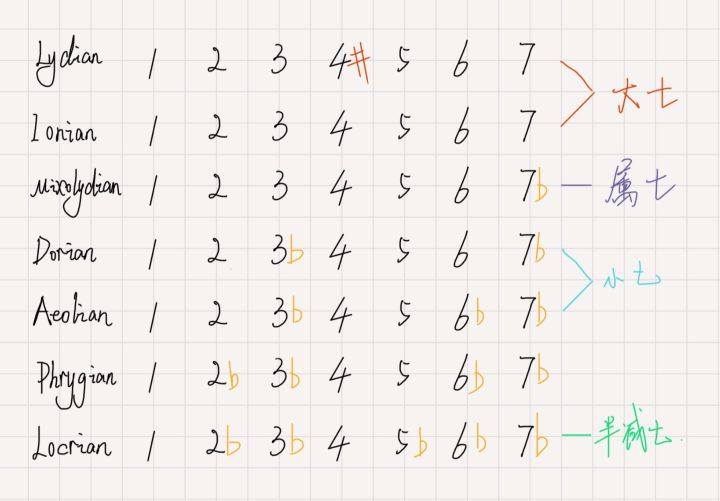 Lydian 1 2 3 4# 5 6 7
大七
Ionian 1 2 3 4 5 6 7
Mixolydian 1 2 3 4 5 6 7b 属七
Dorian 1 2 3b 4 5 6 7b
小七
Aeolian 1 2 3b 4 5 6b 7b
Phrygian 1 2b 3b 4 5 6b 7b
Locrian 1 2b 3b 4 5b 6b 7b 半减七